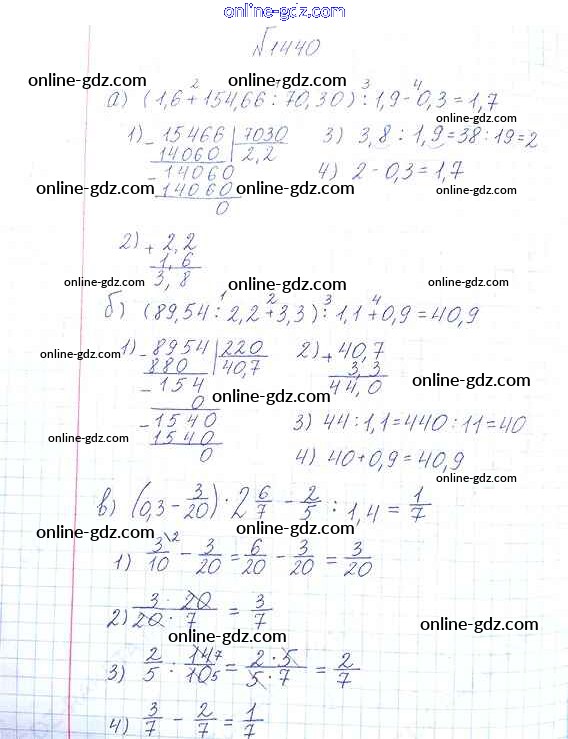 online-gdz.com
№1440
online-gdz.com online-gdz.com online-gdz.com
а) (1,6 + 154,66 : 70,30) : 1,9 - 0,3 = 1,7
2 3 4
1) 15466 | 7030 3) 3,8 : 1,9 = 38 : 19 = 2
online-gdz.com online-gdz.com online-gdz.com
14060 | 2,2
- 14060 4) 2 - 0,3 = 1,7
online-gdz.com online-gdz.com online-gdz.com
14060
0
2) + 2,2
1,6
3,8
online-gdz.com online-gdz.com online-gdz.com
б) (89,54 : 2,2 + 3,3) : 1,1 + 0,9 = 40,9
1 2 3 4
1) - 8954 | 220 2) + 40,7
online-gdz.com
880 | 40,7 3,3
- 154 44,0
online-gdz.com online-gdz.com
0
- 1540 3) 44 : 1,1 = 440 : 11 = 40
online-gdz.com
1540
0 4) 40 + 0,9 = 40,9
online-gdz.com
в) (0,3 - 3/20) · 2 6/7 - 2/5 : 1,4 = 1/7
online-gdz.com online-gdz.com online-gdz.com
1) 3\2/10 - 3/20 = 6/20 - 3/20 = 3/20
2) 3 · 20/20 · 7 = 3/7
online-gdz.com online-gdz.com
3) 2/5 : 14 7/10 5 = 2 · 5/5 · 7 = 2/7
online-gdz.com online-gdz.com
4) 3/7 - 2/7 = 1/7